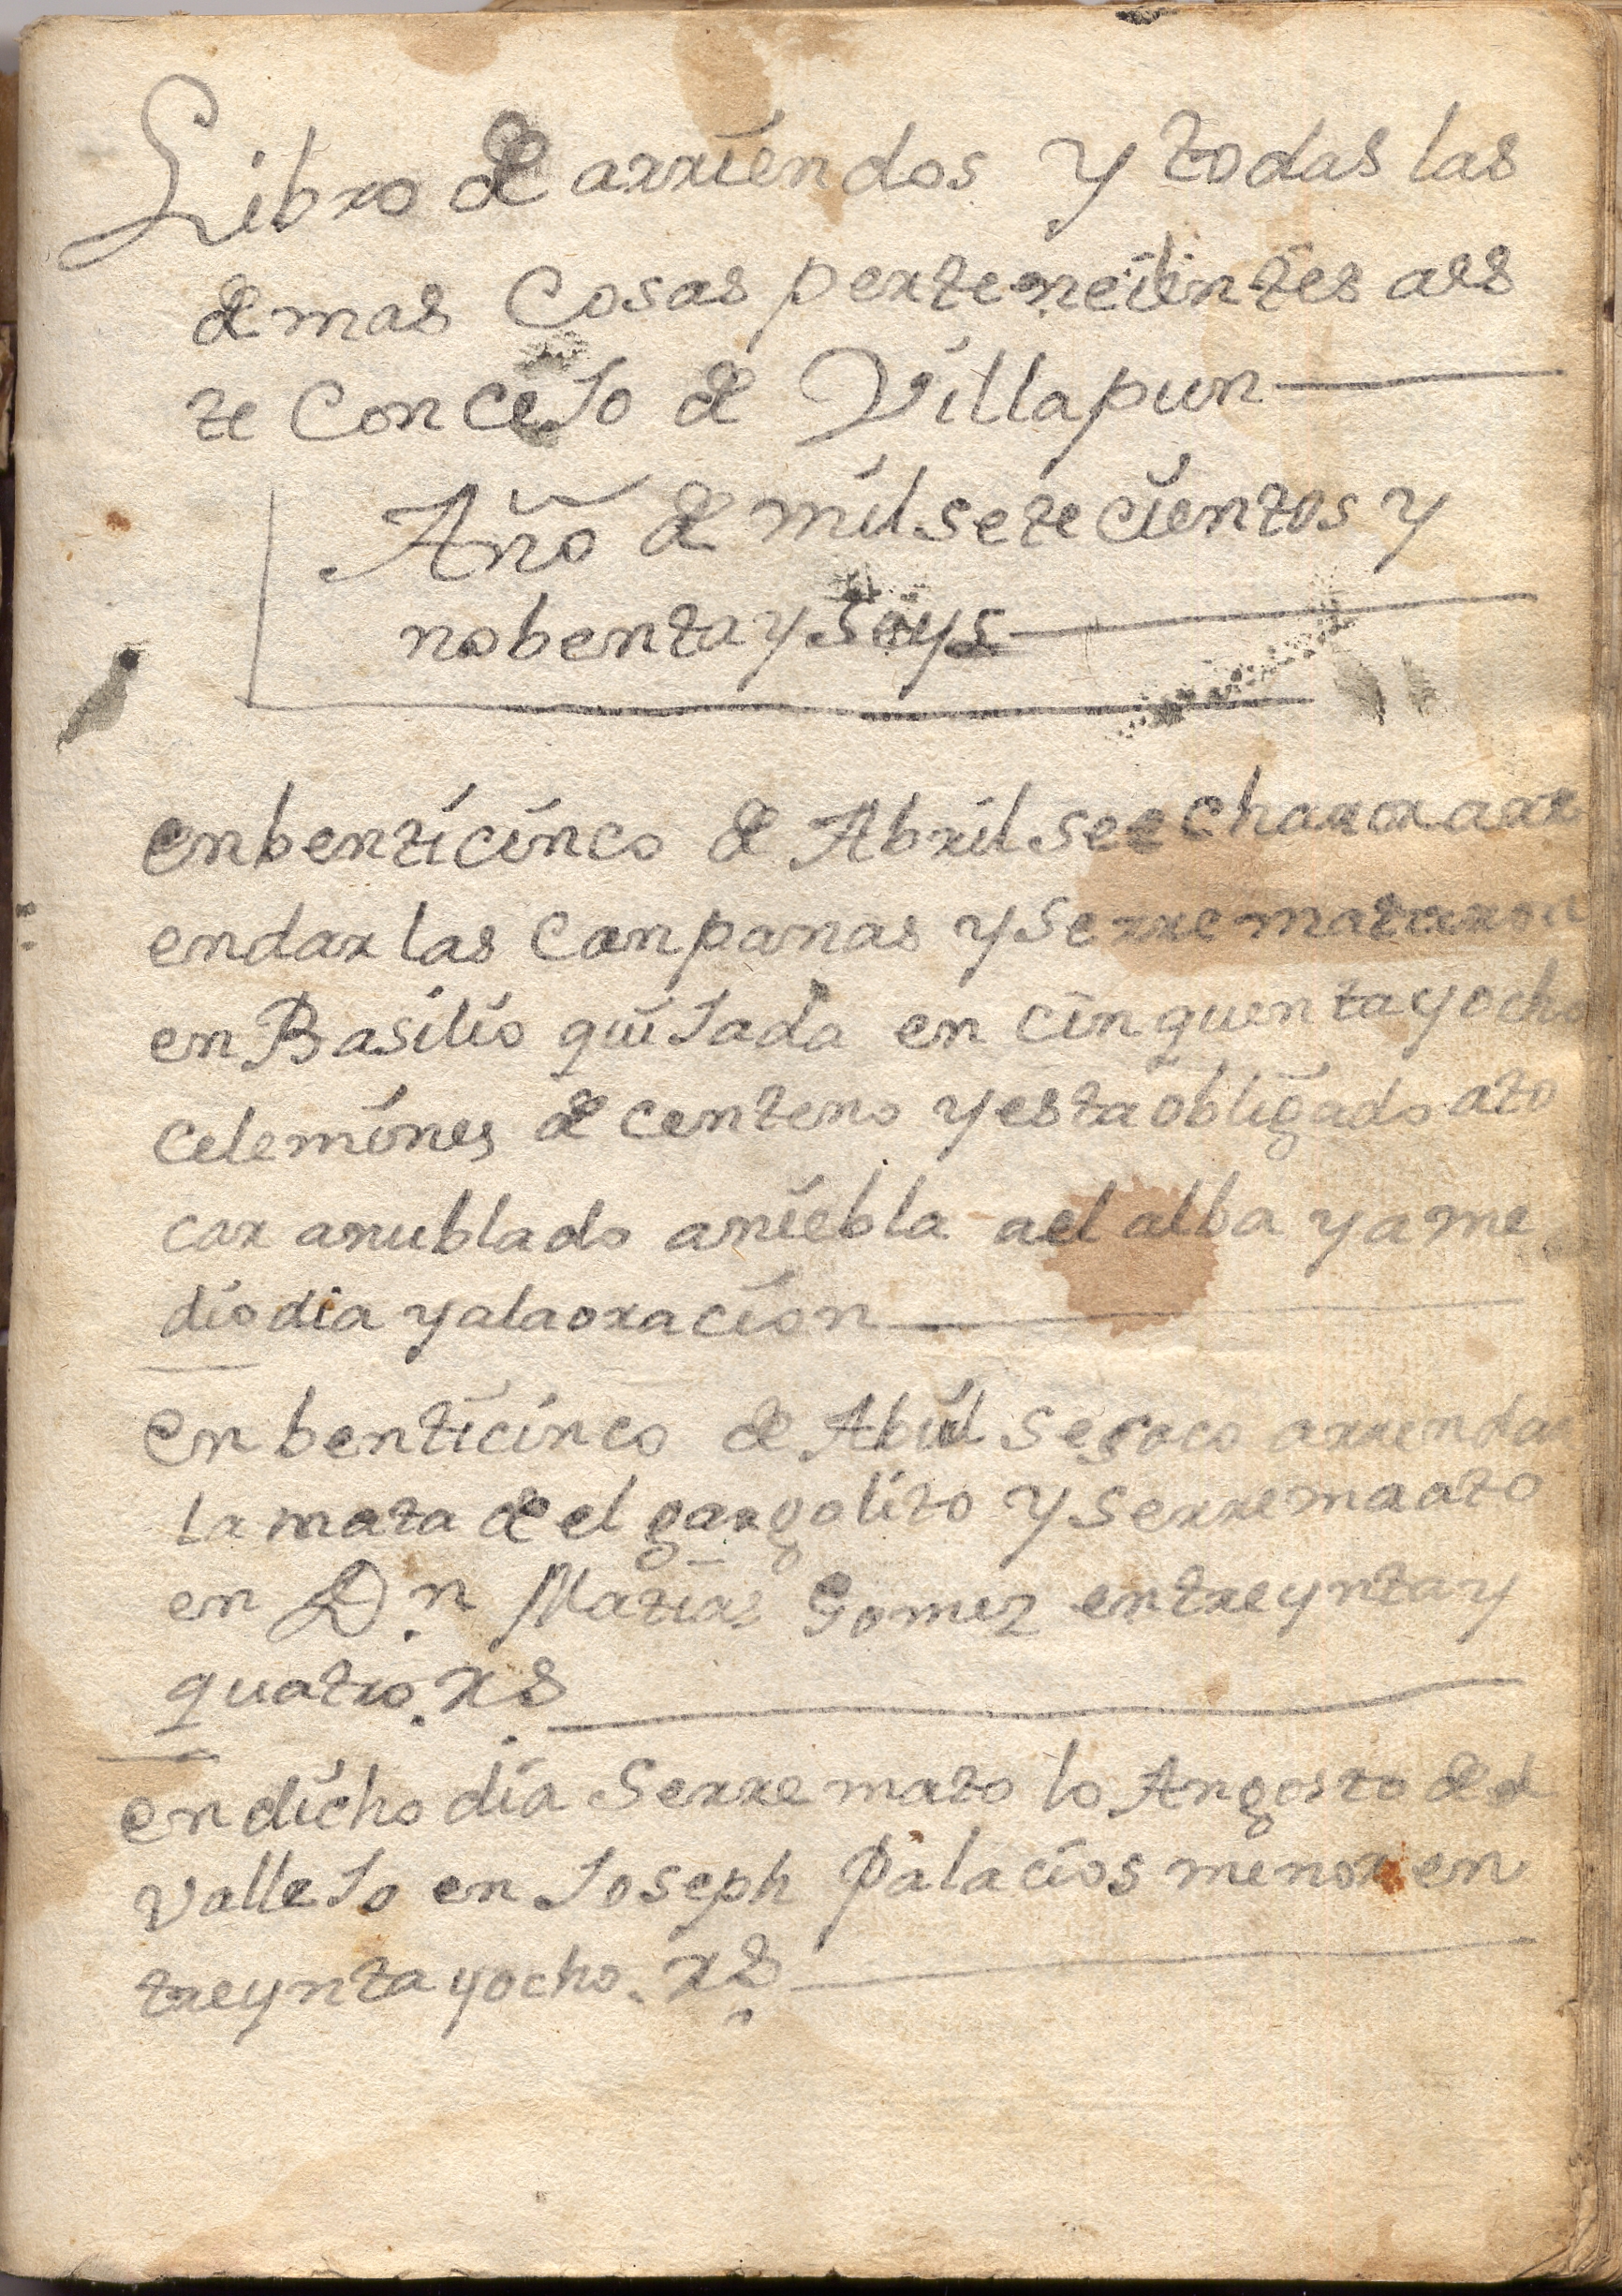 Libro de arriendos y todas las
demas Cosas pertenecientes aes
te Concejo de Villapun
Año de mil setecientos y
nobenta y seys
en benticinco de Abril se echaron a arr
endar las Canpanas y serrematraron
en Basilio quijada en cinquenta y ocho
celemines de centeno y esta obligado a to
car a nublado a niebla a el alba y a me
dio dia y a la oracion
en benticinco de Abril se saco arrendar
la mata de el gargolito y serremaato
en Dn Matias Gomez en treynta y
quatro rs
en dicho dia Serremato lo Angosto de el
Vallejo en Joseph Palacios menor en
treynta y ocho rs